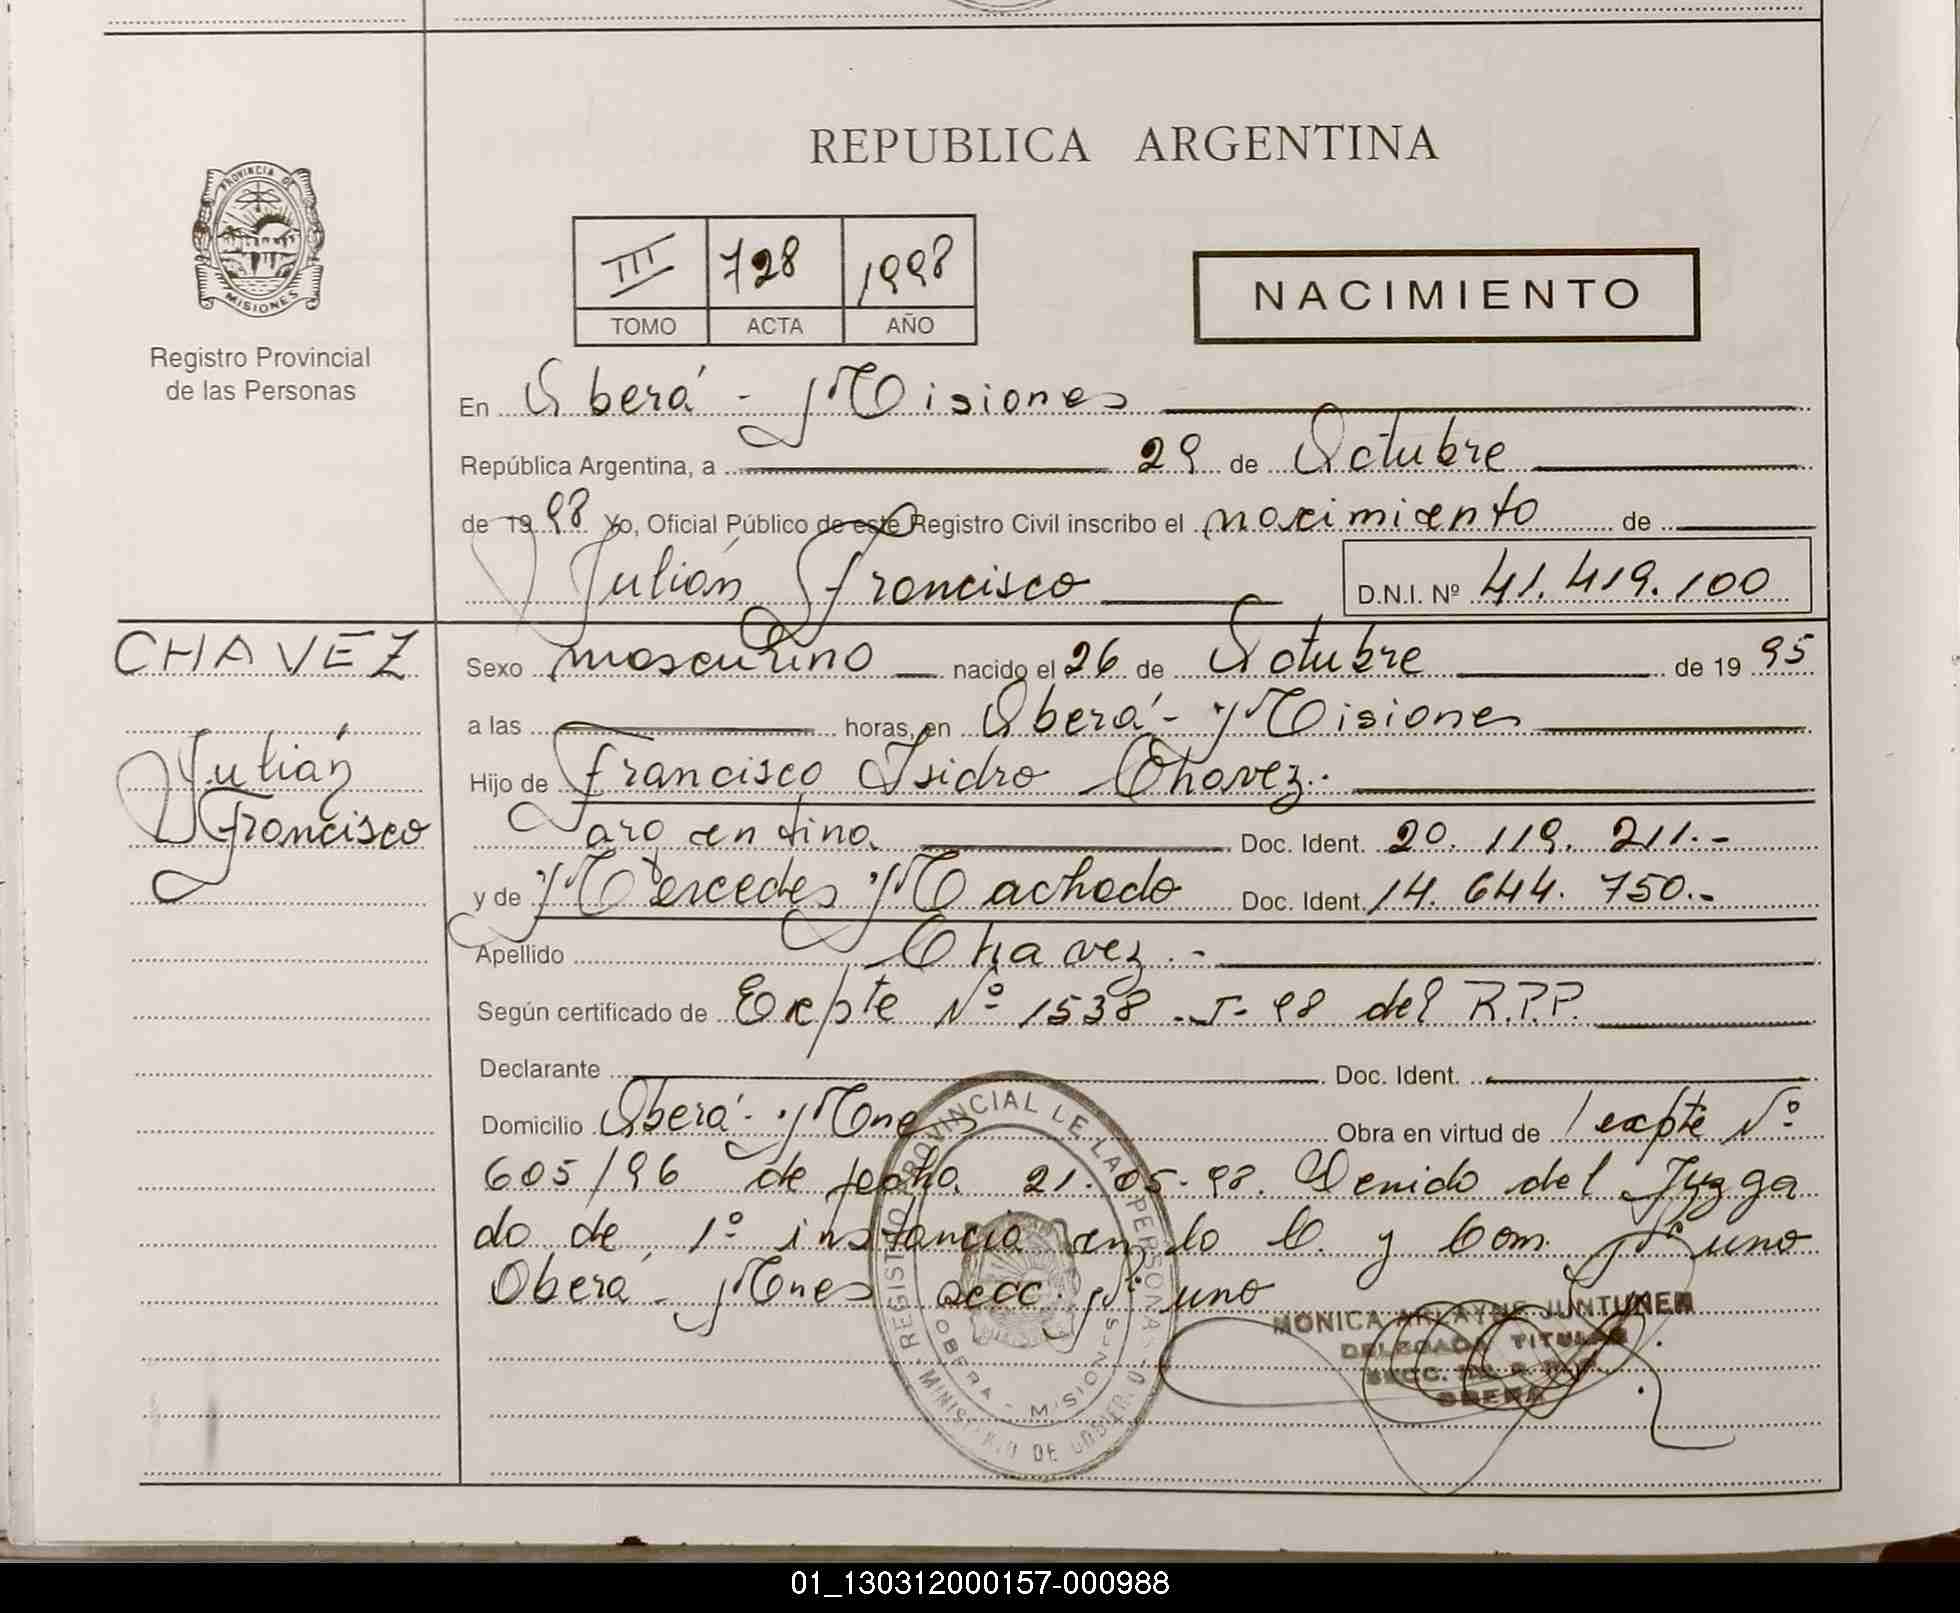 REPUBLICA ARGENTINA
PROVINCIA DE
MISIONES
Registro Provincial
de las Personas
III 728 1998
TOMO ACTA AÑO
NACIMIENTO
En Oberá - Misiones
República Argentina, a 29 de Octubre
de 19 98 Yo, Oficial Público de este Registro Civil inscribo el nacimiento de
Julián Francisco D.N.I. Nº 41.419.100
CHAVEZ
Julián
Francisco
Sexo masculino nacido el 26 de Octubre de 19 95
a las horas, en Oberá - Misiones
Hijo de Francisco Isidro Chavez.-
argentino Doc. Ident. 20.119.211.-
y de Mercedes Machado Doc. Ident. 14.644.750.-
Apellido Chavez.-
Según certificado de Expte Nº 1538-J-98 del R.P.P.
Declarante Doc. Ident.
Domicilio Oberá - Mnes Obra en virtud de expte Nº
605/96 de fecha 21-05-98. Venido del Juzga
do de 1º instancia en lo C. y Com. Nº uno
Oberá - Mnes Secc. Nº uno
REGISTRO PROVINCIAL DE LAS PERSONAS
OBERA - MISIONES
MINISTERIO DE GOBIERNO
MONICA ARLAYNE JUNTUNEN
DELEGADA TITULAR
OBERA
01_130312000157-000988